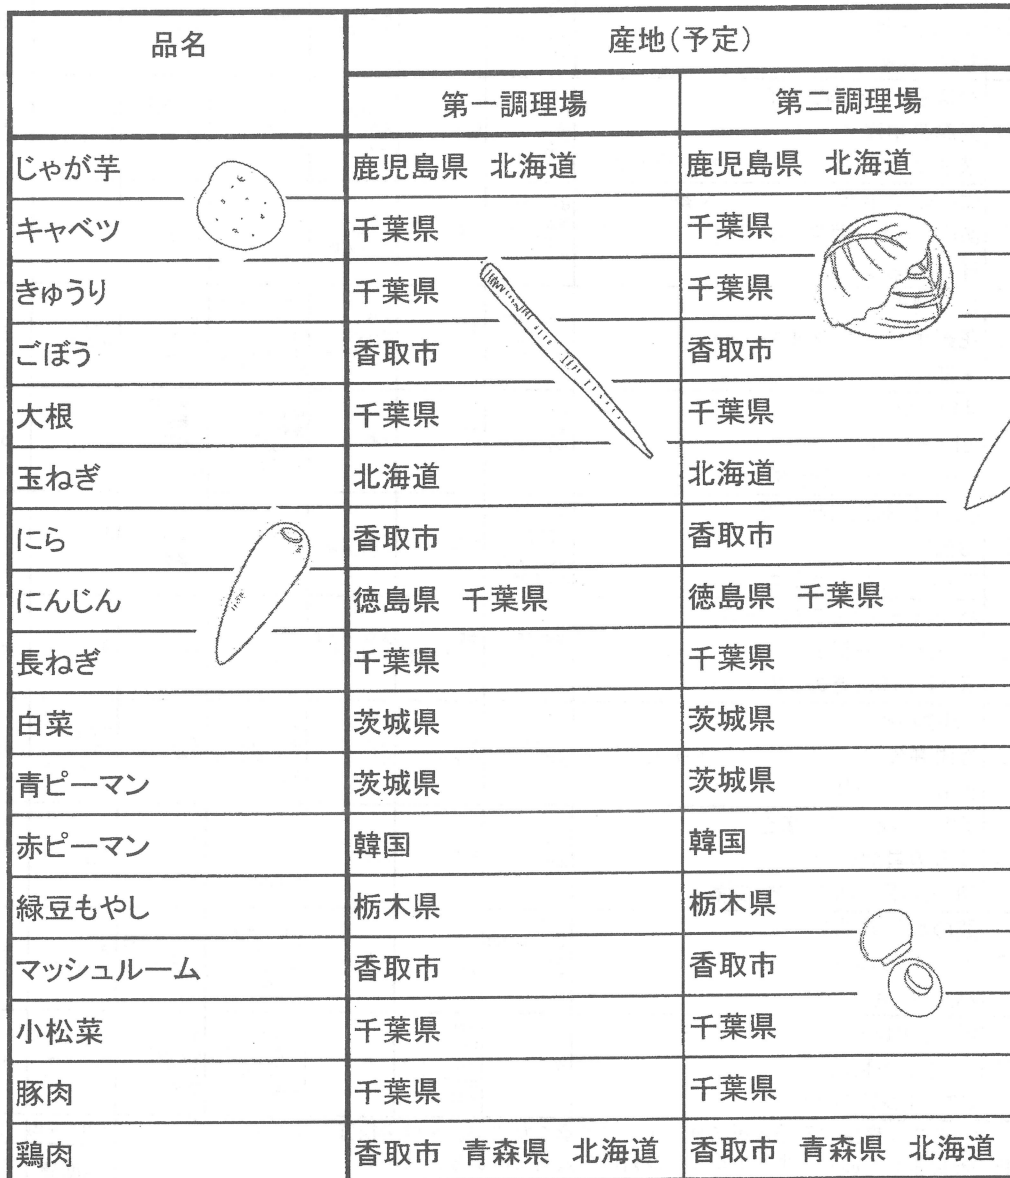 品名 産地(予定)
第一調理場 第二調理場
じゃが芋 鹿児島県 北海道 鹿児島県 北海道
キャベツ 千葉県 千葉県
きゅうり 千葉県 千葉県
ごぼう 香取市 香取市
大根 千葉県 千葉県
玉ねぎ 北海道 北海道
にら 香取市 香取市
にんじん 徳島県 千葉県 徳島県 千葉県
長ねぎ 千葉県 千葉県
白菜 茨城県 茨城県
青ピーマン 茨城県 茨城県
赤ピーマン 韓国 韓国
緑豆もやし 栃木県 栃木県
マッシュルーム 香取市 香取市
小松菜 千葉県 千葉県
豚肉 千葉県 千葉県
鶏肉 香取市 青森県 北海道 香取市 青森県 北海道